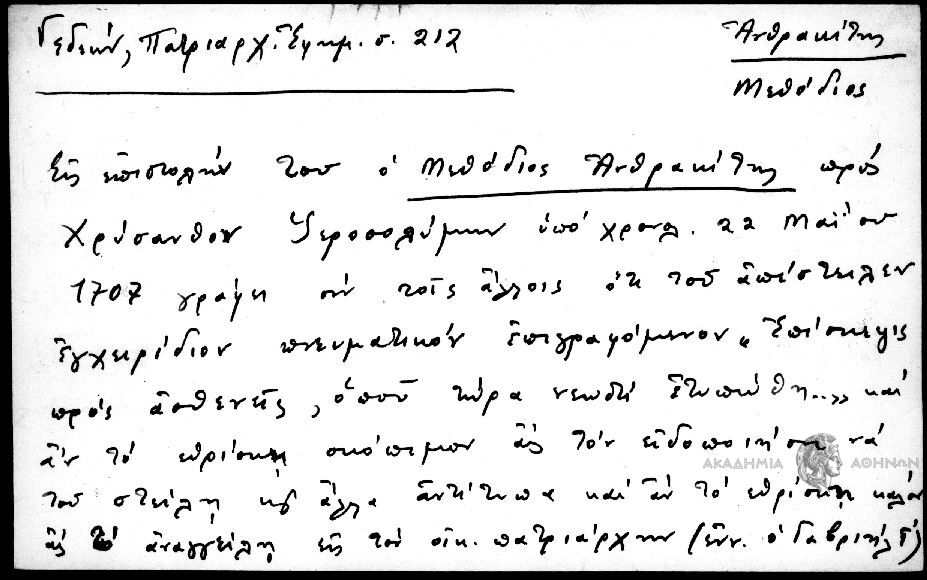 Γεδεών, Πατριαρχ. Ἐφημ. σ. 212
Ἀνθρακίτης
Μεθόδιος
Εἰς ἐπιστολήν του ὁ Μεθόδιος Ἀνθρακίτης πρός
Χρύσανθον Ἱεροσολύμων ὑπό χρονλ. 22 Μαΐου
1707 γράφει σύν τοῖς ἄλλοις ὅτι τοῦ ἀπέστειλεν
ἐγχειρίδιον πνευματικόν ἐπιγραφόμενον „Ἐπίσκεψις
πρός ἀσθενεῖς, ὁποῦ τώρα νεωστί ἐτυπώθη...„ καί
ἄν τό εὑρίσκῃ σκόπιμον ἄς τόν εἰδοποιήσῃ νά
τοῦ στείλῃ κι' ἄλλα ἀντίτυπα καί ἄν τό εὑρίσκῃ καλόν
ἄς τό ἀναγγείλῃ εἰς τόν οἰκ. πατριάρχην (ἐνν. ὁ Γαβριήλ Γ΄)
ΑΚΑΔΗΜΙΑ ΑΘΗΝΩΝ